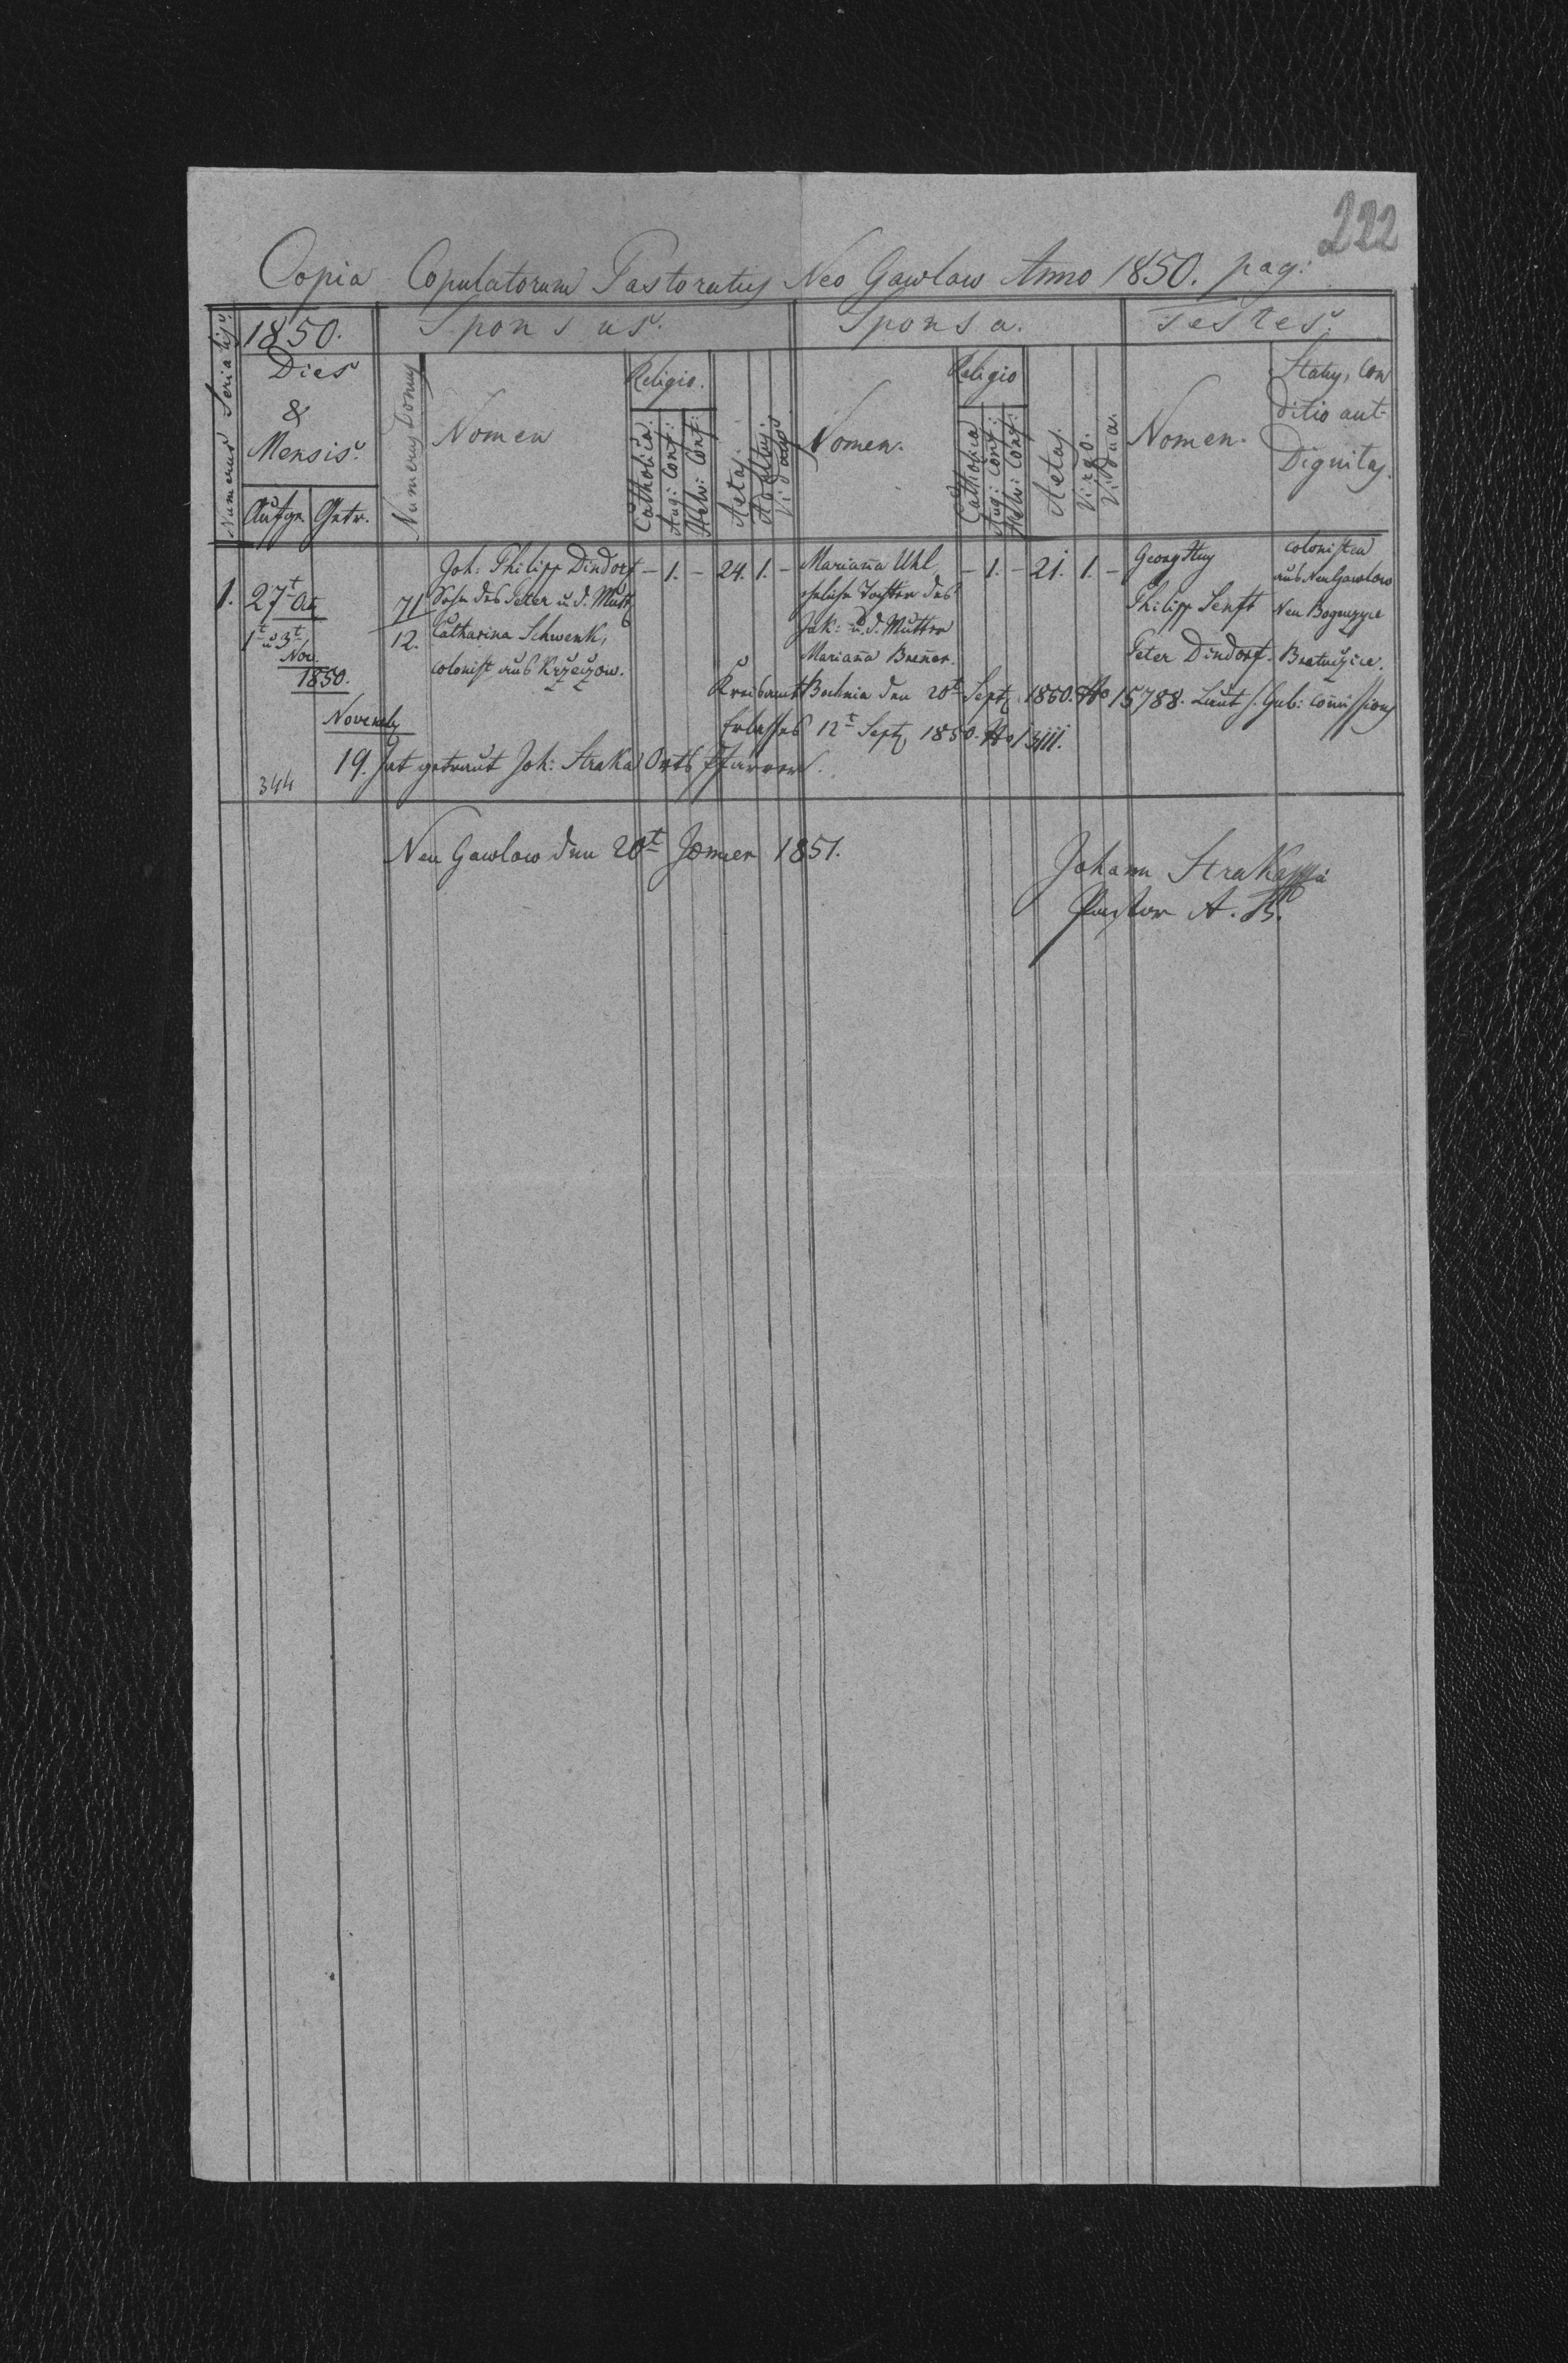 222
Copia Copulatorum Pastoratus Neo Gawlow Anno 1850. pag:
Numerus Serialis.
1850.
Sponsus.
Sponsa.
Testes.
Dies
&
Mensis.
Aufge.
Getr.
Numerus Domus
Nomen
Religio.
Catholica.
Aug: Conf:
Helv: Conf:
Aetas.
Viduus
Nomen.
Religio
Catholica
Aug: Conf:
Helv: Conf:
Aetas.
Virgo.
Vidua.
Nomen.
Status, Con
ditio aut-
Dignitas.
1. 27t Oct
1t u 3t
Nov.
1850.
71
12.
Joh: Philipp Dindorf – 1. – 24. 1. –
Sohn des Peter u. d. Mutt
Catharina Schwenk,
colonist aus Krzeczow.
Mariana Uhl – 1. – 21. 1. –
eheliche Tochter des
Jak: u. d. Mutter
Mariana Brener.
Georg
Philipp Senft
Peter Dindorf.
colonisten
aus Neu Gawlow
Neu
Bratucice.
Kreisamt Bochnia den 20t Sept 1850. No 15788. Laut h. Gub: Comissions
Erlasses 12t Sept 1850. No 13111.
November
19. Hat getraut Joh: Straka Orts Pfarrer.
344
Neu Gawlow den 20t Jänner 1851.
Johann Straka
Pastor A. B.